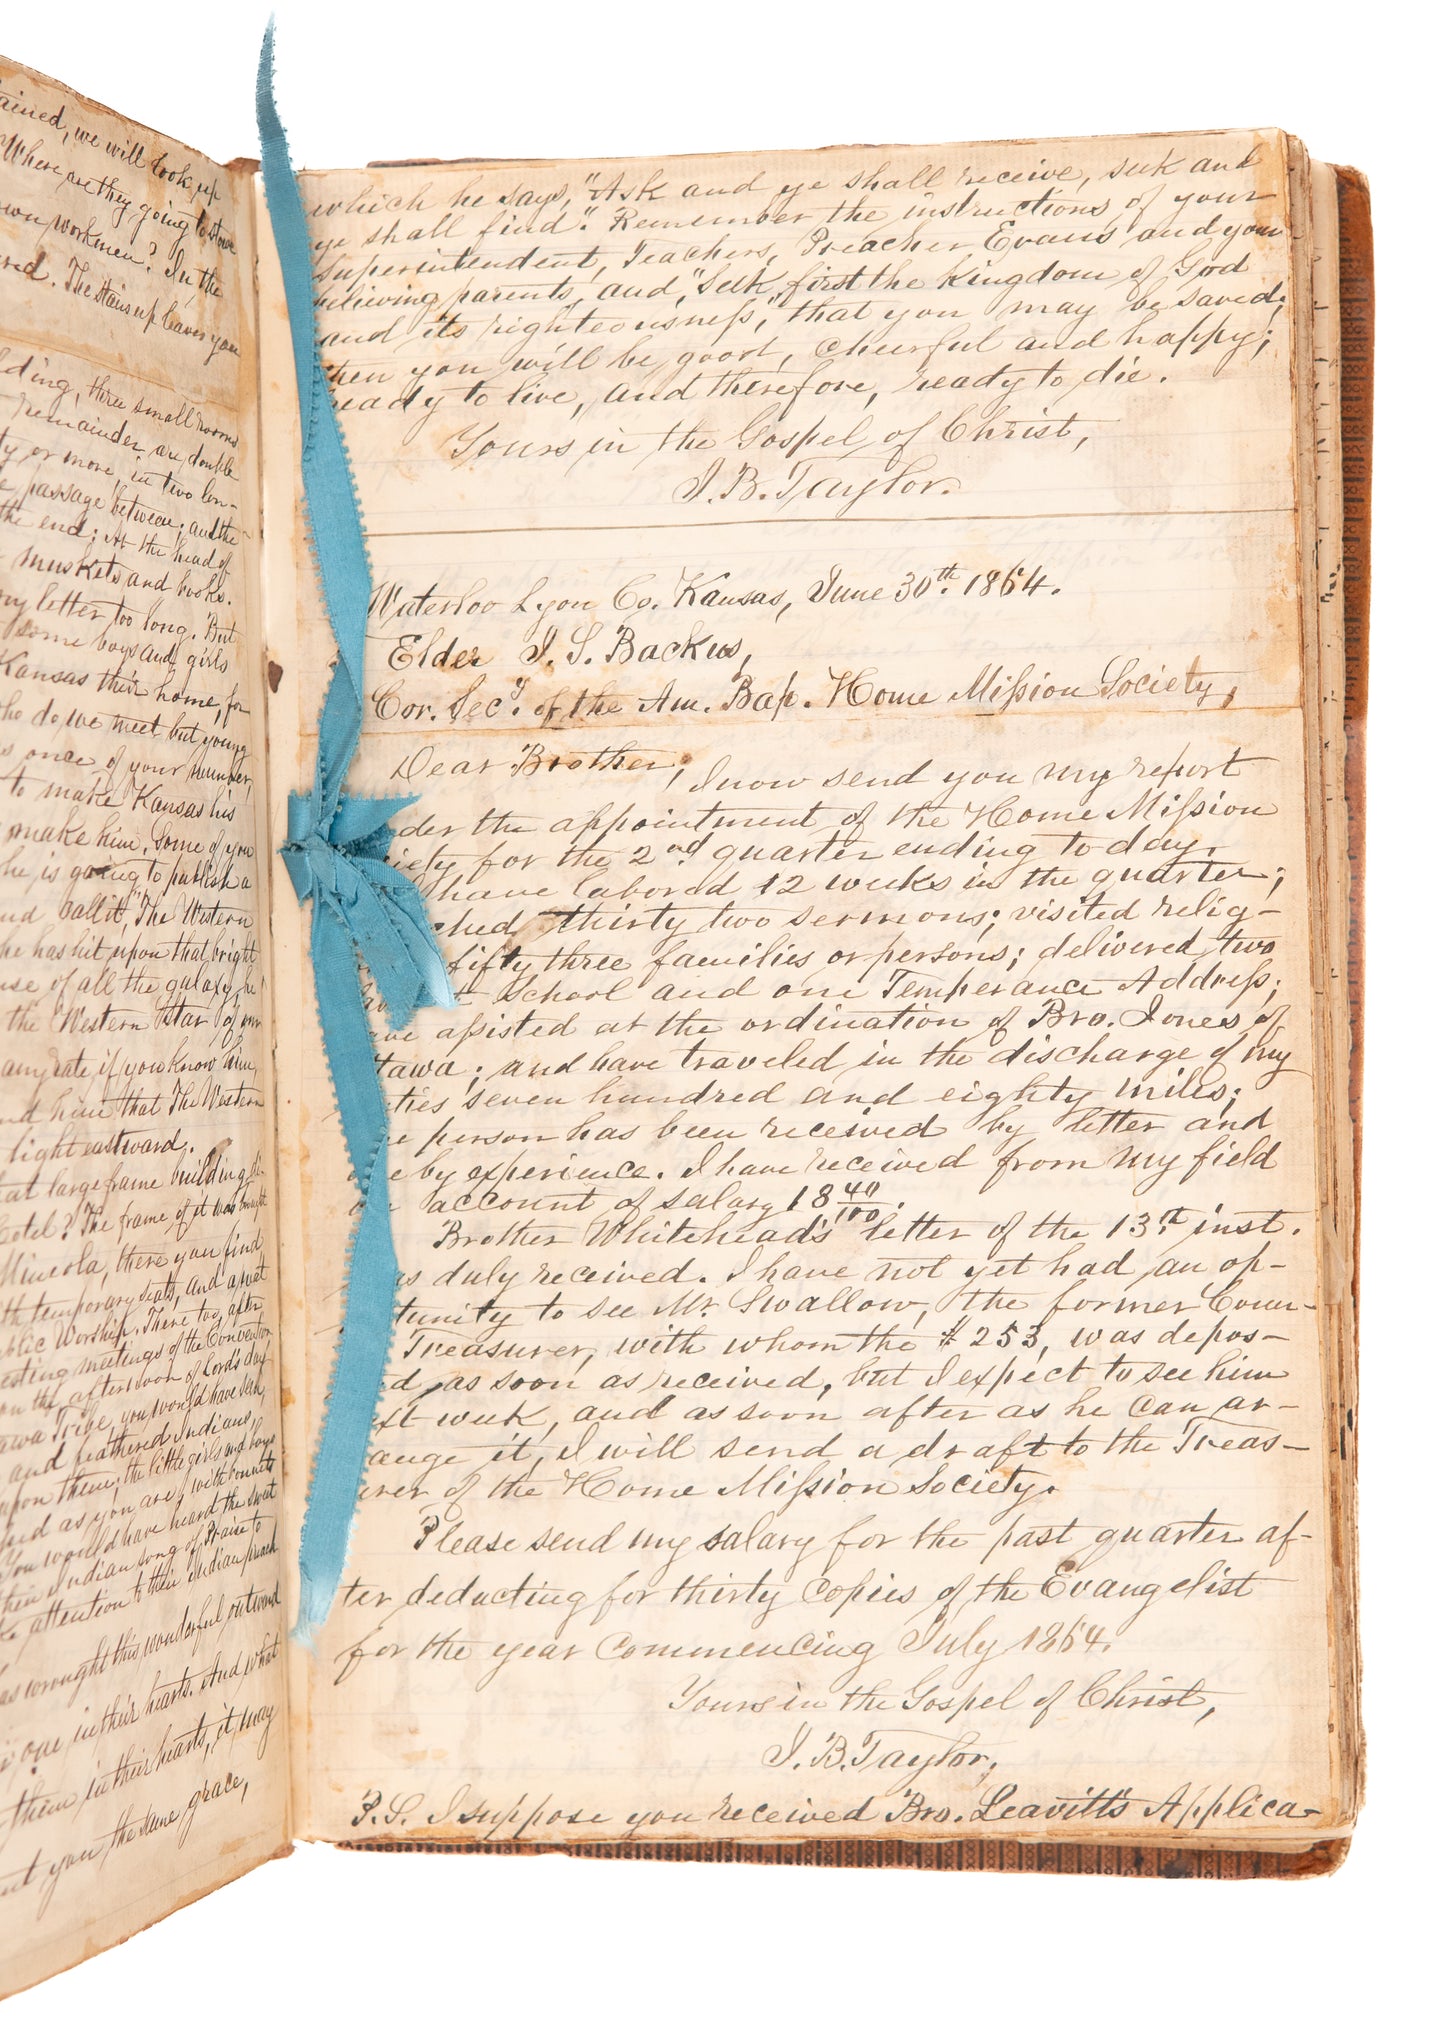 ained, we will look up
Where are they going to stow
own workmen? In the
red. The stairs up leaves you
lding, three small rooms
remainder are double
ty or more, in two lon-
e passage between; and the
the end; At the head of
muskets and books.
my letter too long. But
some boys and girls
Kansas their home, for
ho do we meet but young
s once of your number,
to make Kansas his
make him. Some of you
he is going to publish a
nd call it, "The Western
he has hit upon that bright
use of all the galaxy, he
the Western Star of our
any rate, if you know him,
nd him that The Western
light eastward.
at large frame building
otel? The frame of it was brought
Mineola, there you find
th temporary seats, and a neat
blic Worship. There too, after
esting meetings of the Convention
on the afternoon of Lord's day
awa Tribe, you would have seen
and feathered Indians,
upon them; the little girls and boys
ped as you are, with bonnets
You would have heard the sweet
their Indian song of Praise to
ke attention to their Indian preach
as wrought this wonderful outward
one in their hearts. And what
them in their hearts, it may
nt you the same grace,
which he says, "Ask and ye shall receive, seek and
ye shall find". Remember the instructions of your
superintendent, Teachers, Preacher Evans and your
believing parents, and, "Seek first the kingdom of God
and its righteousness," that you may be saved;
then you will be good, cheerful and happy;
ready to live, and therefore, ready to die.
Yours in the Gospel of Christ,
J. B. Taylor.
Waterloo Lyon Co. Kansas, June 30th. 1864.
Elder J. S. Backus,
Cor. Secy. of the Am. Bap. Home Mission Society,
Dear Brother, I now send you my report
der the appointment of the Home Mission
ciety for the 2nd quarter ending to day.
have labored 12 weeks in the quarter;
ched thirty two sermons; visited relig-
fifty three families or persons; delivered two
School and one Temperance Address;
ave assisted at the ordination of Bro. Jones of
tawa; and have traveled in the discharge of my
ties seven hundred and eighty miles;
e person has been received by letter and
e by experience. I have received from my field
account of salary 18 40/100.
Brother Whitehead's letter of the 13th. inst.
as duly received. I have not yet had an op-
tunity to see Mr. Swallow, the former Coun-
Treasurer, with whom the $253, was depos-
d, as soon as received, but I expect to see him
xt week, and as soon after as he can ar-
ange it, I will send a draft to the Treas-
urer of the Home Mission Society.
Please send my salary for the past quarter af-
ter deducting for thirty copies of the Evangelist
for the year commencing July 1864.
Yours in the Gospel of Christ,
J. B. Taylor,
P.S. I suppose you received Bro. Leavitt's Applica-